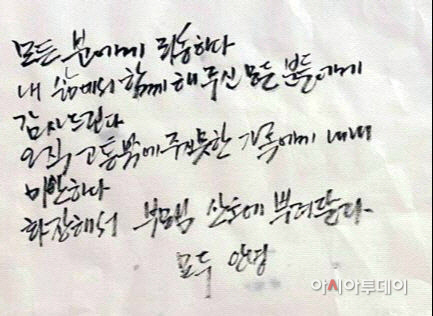 모든 분에게 죄송하다
내 삶에서 함께 해 주신 모든 분들에게
감사드린다
오직 고통밖에 주지못한 가족에게 내내
미안하다
화장해서 부모님 산소에 뿌려달라.
모두 안녕
아시아투데이